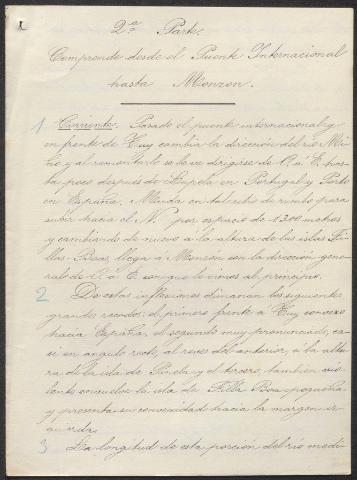 2.ª Parte.
Comprende desde el Puente Internacional
hasta Monzon.
1 Corriente. Pasado el puente internacional y
en frente de Tuy cambia la dirección del río Mi-
ño y al remontarlo se la ve dirigirse de O. á E. has-
ta poco despues de en Portugal y
en España. Muda en tal sitio de rumbo para
subir hacia el N. por espacio de 1300 metros
y cambiando de nuevo á la altura de las islas Fi-
llas-Boas, llega á Monzón con la dirección gene-
ral de O. á E. con que le vimos al principio.
2 De estas inflexiones dimanan los siguientes
grandes recodos: el primero frente á Tuy convexo
hacia España, el segundo muy pronunciado, ca-
si en angulo recto, al reves del anterior, á la altu-
ra de la isla de y el tercero, tambien vio-
lento envuelve la isla de Filla Boa pequeña
y presenta su convexidad hacia la margen iz-
quierda.
3 La longitud de esta porcion del río medi-